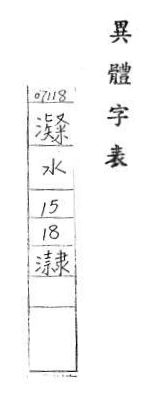 異體字表
07118
水
15
18